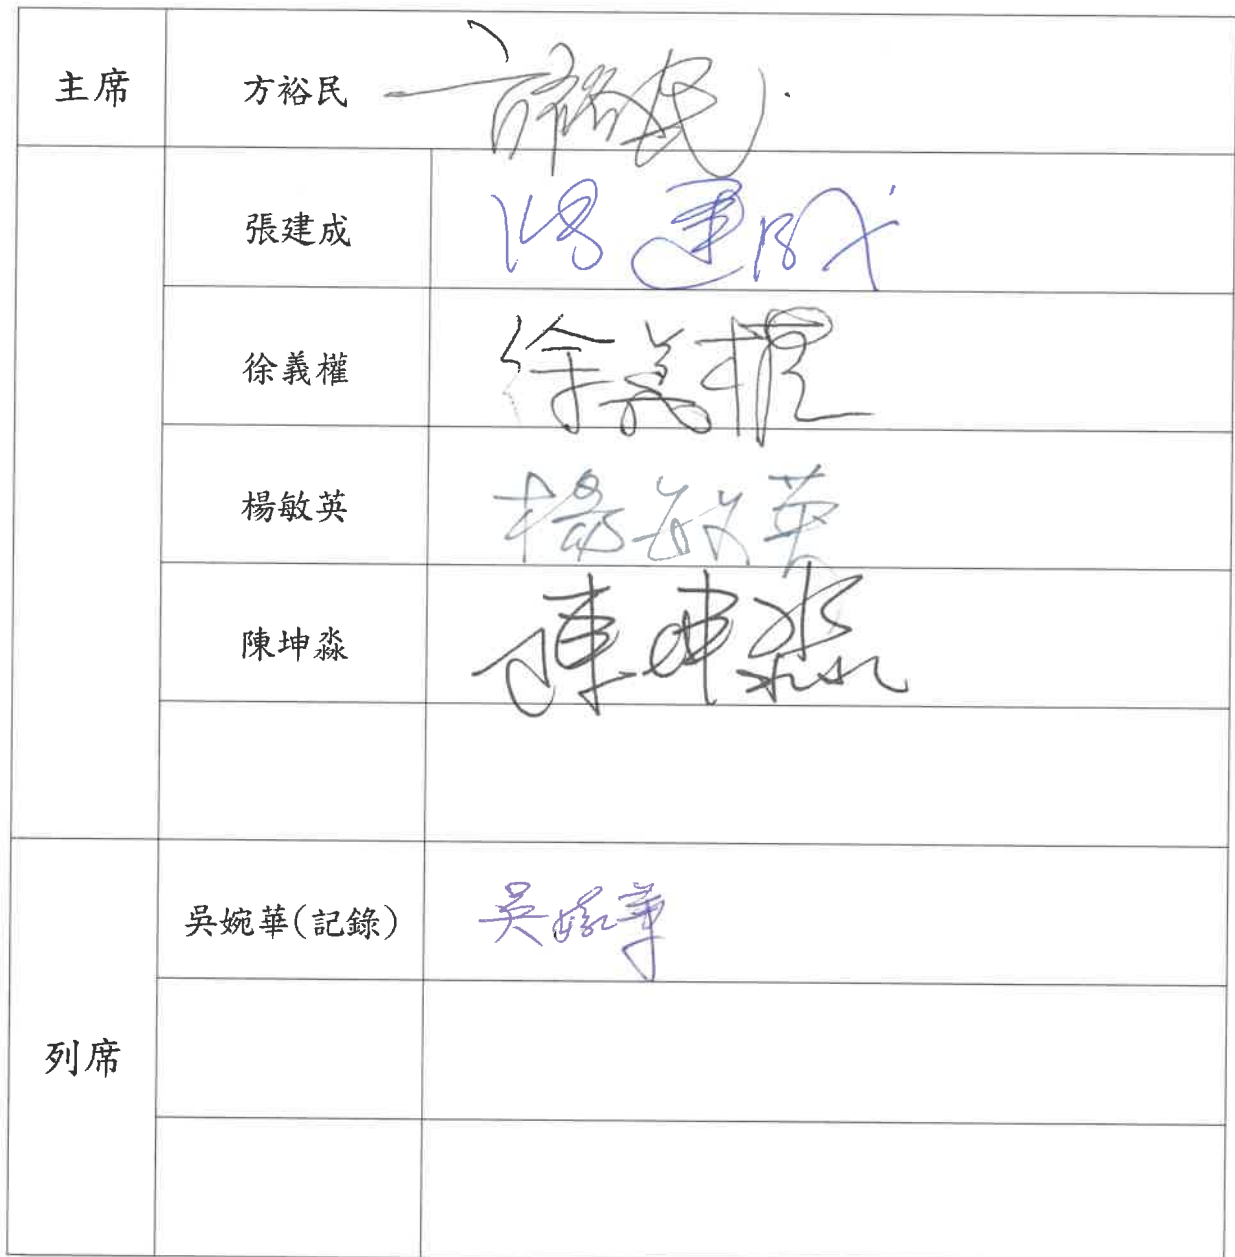 主席 方裕民 方裕民
張建成 張建成
徐義權 徐義權
楊敏英 楊敏英
陳坤淼 陳坤淼
吳婉華(記錄) 吳婉華
列席